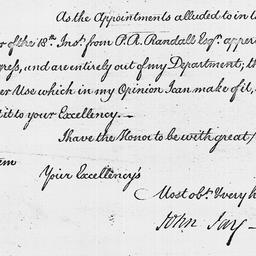 As the Appointments alluded to in t
of the 18th. Inst. from P. R. Randall Esqr. apper
gress, and are entirely out of my Department; th
er Use which in my Opinion I can make of it,
it to your Excellency.—
I have the Honor to be with great
Your Excellency's
Most obt. & very h
John Jay—